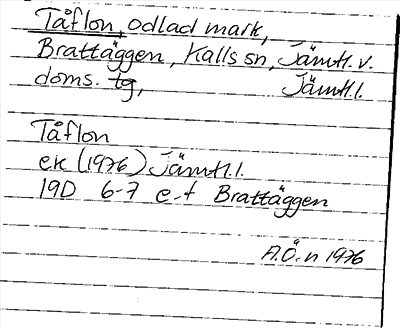 Tåflon, odlad mark,
Brattäggen, Kalls sn, Jämtl. v.
doms. tg, Jämtl.l.
Tåflon
ek (1976) Jämtl.l.
19D 6-7 e-f Brattäggen
A.Ö.n 1976